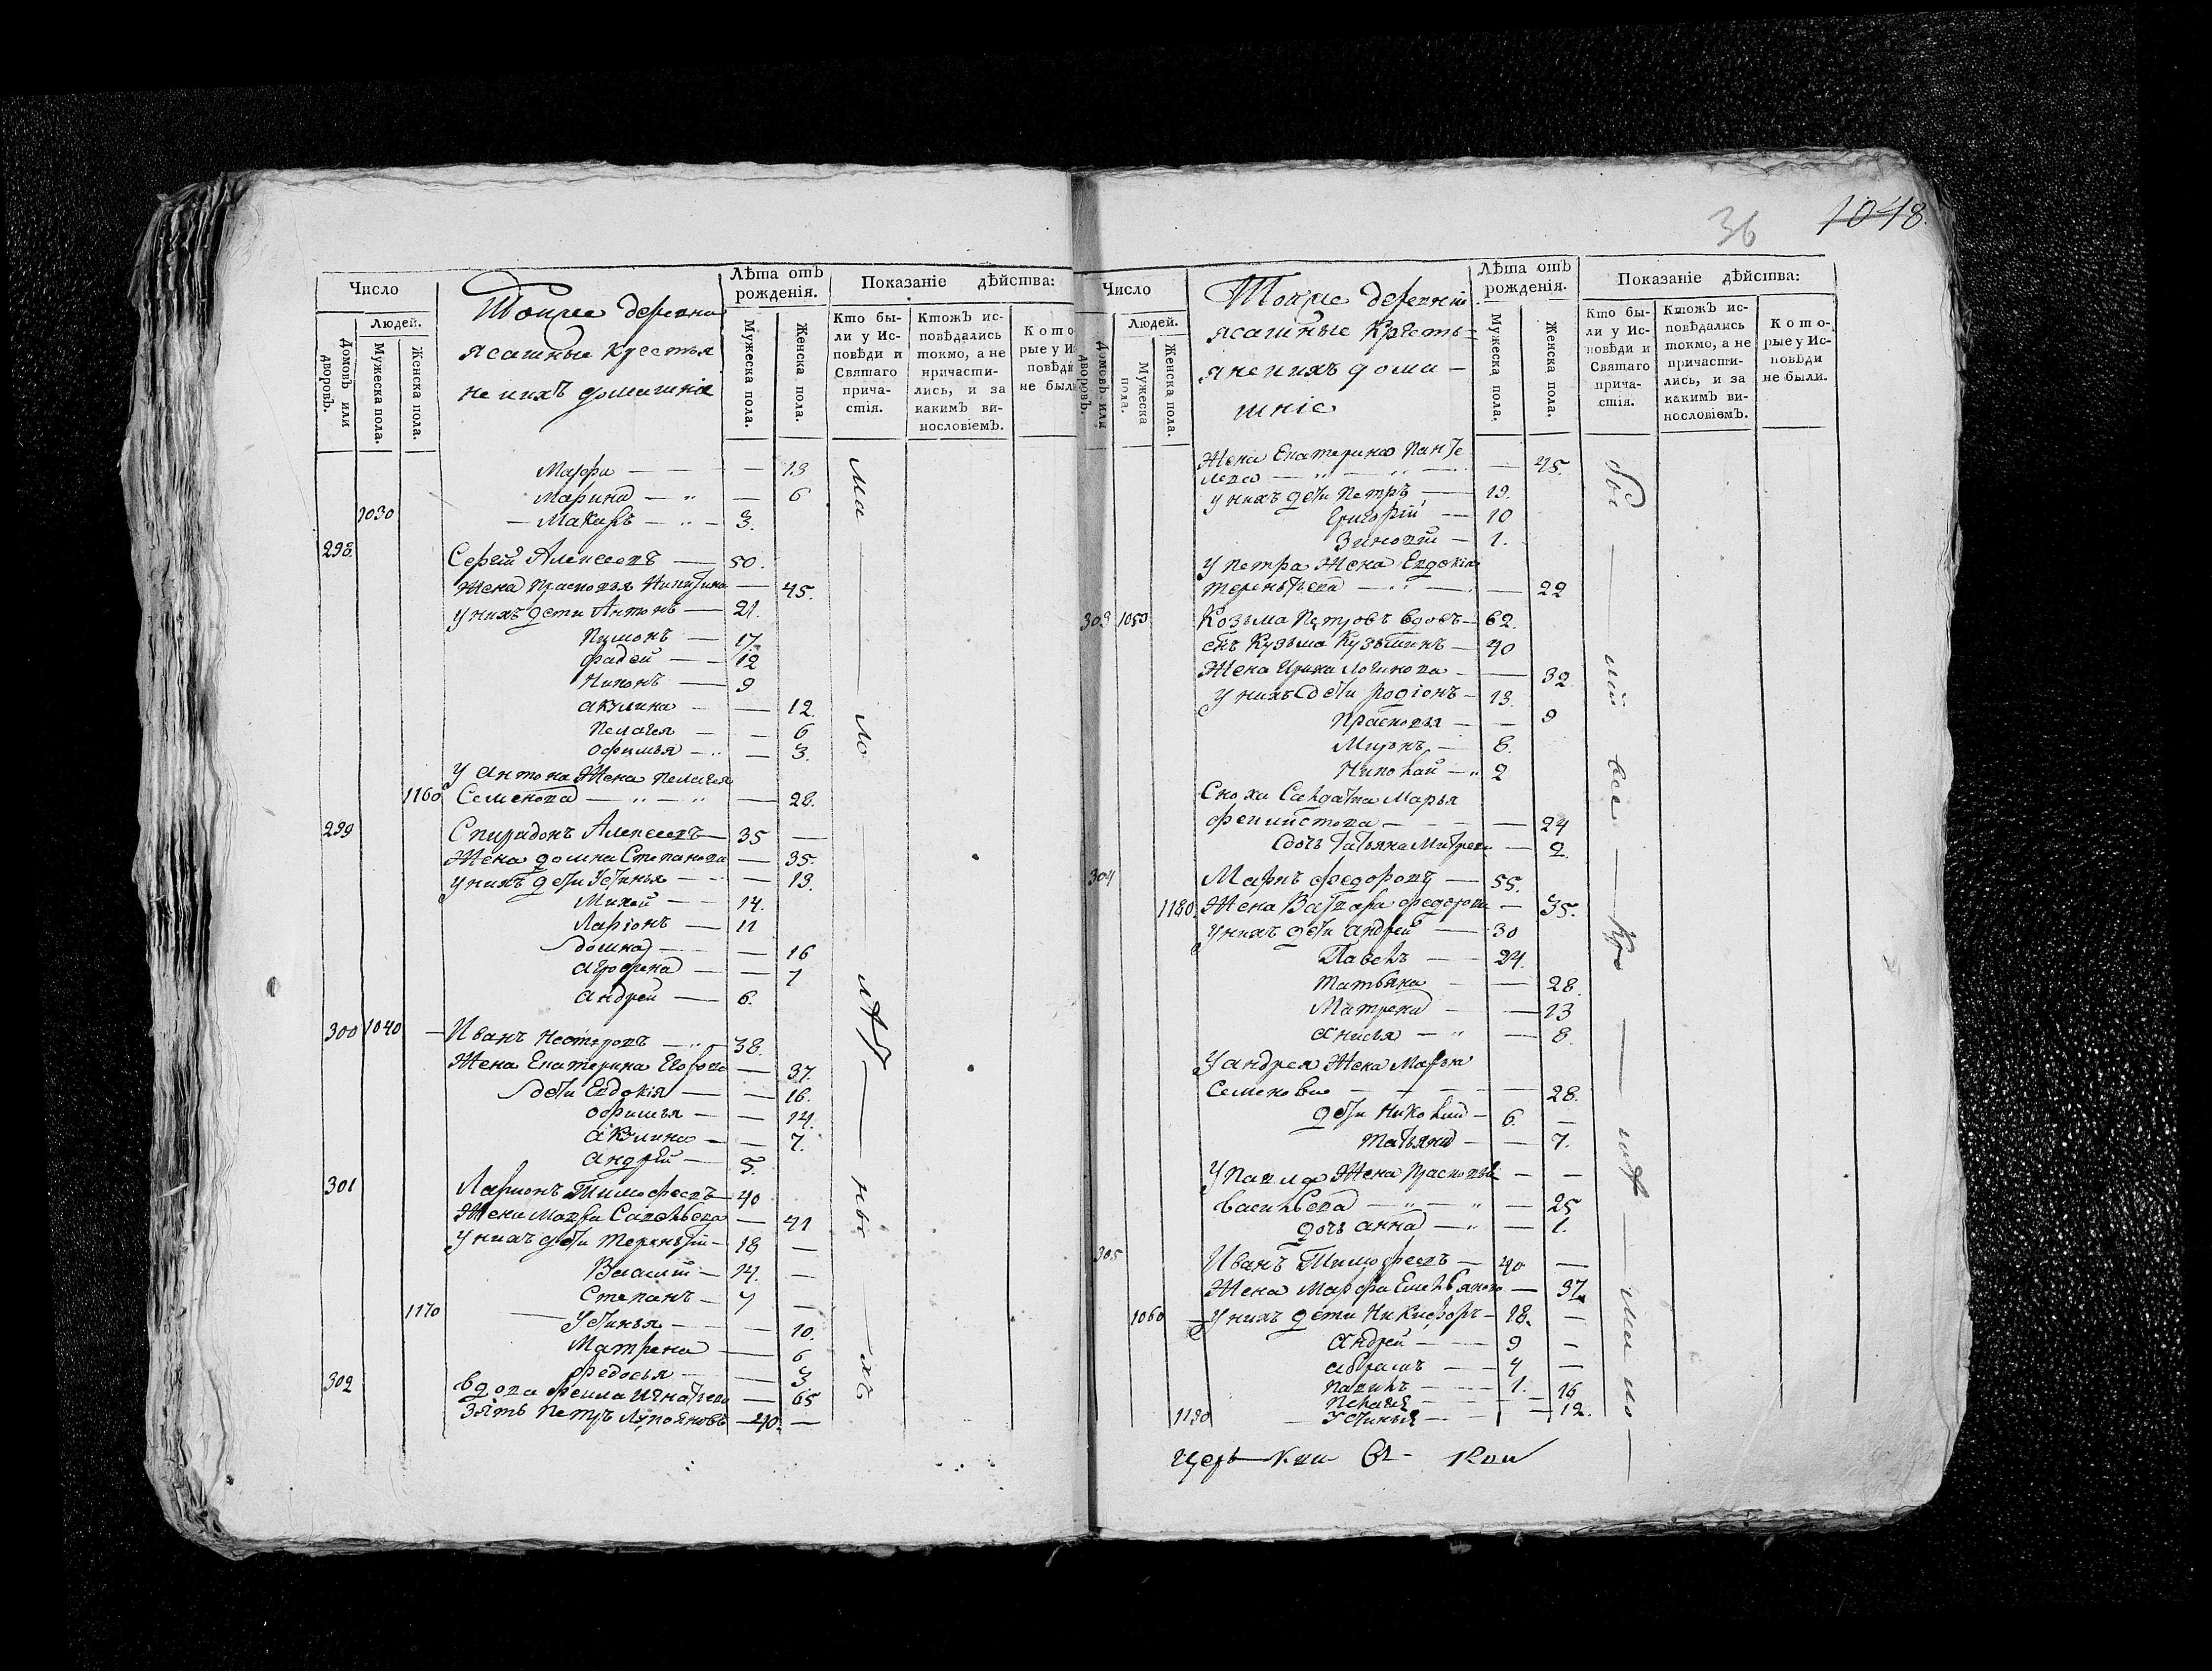 Число
Людей.
Домовъ или дворовъ.
Мужеска пола.
Женска пола.
Тояже деревни
ясашные крестья
не иихъ домашніе
Лѣта отъ рожденія.
Мужеска пола.
Женска пола.
Показаніе дѣйства:
Кто были у Исповѣди и Святаго причастія.
Ктожъ исповѣдались токмо, а не причастились, и за какимъ винословіемъ.
Которые у Исповѣди не были
Марфа — — 13
Марина — — 6
1030 — Макаръ — 3.
298. Сергій Алексеевъ — 50.
Жена Прасковья Никитина — 45.
у нихъ дети Антонъ — 21.
Пимонъ — 17
Фадей — 12
Никонъ — 9
Акулина — — 12.
Пелагея — — 6
Офимья — — 3.
У Антона Жена Пелагея
1160 Семенова — — 28.
299 Спиридонъ Алексеевъ — 35 —
Жена Домна Степанова — 35.
у нихъ дѣти Устинья — — 13.
Михей — 14.
Ларіонъ — 11
Домна — — 16
Агрофена — — 7
Андрей — 6.
300 1040 — Иванъ Нестеровъ — 38.
Жена Екатерина Егорова — 37.
дѣти Евдокія — — 16.
Офимья — — 14.
Акулина — — 7.
Андрей — 5.
301 Ларионъ Тимофеевъ — 40
Жена Мавра Савельева — 41
У нихъ дѣти Терентій — 18 —
Василій — 14. —
Степанъ — 7 —
1170 — Устинья — — 10.
Матрена — 6
Федосья — 3
302 вдова Фекла Игнатьева — 65
Зять Петръ Лупояновъ — 40. —
36
1048.
Число
Людей.
Домовъ или дворовъ.
Мужеска пола.
Женска пола.
Тояже деревни
ясашные Кресть-
яне иихъ дома-
шніе
Лѣта отъ рожденія.
Мужеска пола.
Женска пола.
Показаніе дѣйства:
Кто были у Исповѣди и Святаго причастія.
Ктожъ исповѣдались токмо, а не причастились, и за какимъ винословіемъ.
Которые у Исповѣди не были.
Жена Екатерина Панте
лева — — 45.
у нихъ дѣти Петръ — 19.
Григорій — 10
Зиновій — 1.
У Петра Жена Евдокія
Терентьева — — 22
303 1050 Козьма Петровъ вдовъ — 62.
снъ Кузьма Кузьминъ — 40
Жена Ирина Логинова — — 32
У нихъ дѣти Родіонъ — 13.
Прасковья — — 9
Миронъ — 8.
Николай — 2
Сноха Салдатка Марья
Феклистова — — 24
дочь Татьяна Митрева — 2.
304 Маркъ Федоровъ — 55.
1180 Жена Варвара Федорова — 35.
У нихъ дѣти Андрей — 30
Павелъ — 24.
Татьяна — — 28.
Матрена — — 13
Анисья — — 8.
У Андрея Жена Марья
Семенова — — 28.
дѣти Николай — 6. —
Татьяна — — 7.
У Павла Жена Прасковья — —
Васильева — — 25
дочь Анна — — 1.
305 Иванъ Тимофеевъ — 40 —
Жена Марфа Емельянова — 37.
1060 — У нихъ дети Никифоръ — 18. —
Андрей — 9 —
Абрамъ — 4 —
Павилъ — 1. 16
Пелагея —
1190 — Устинья — — 12.